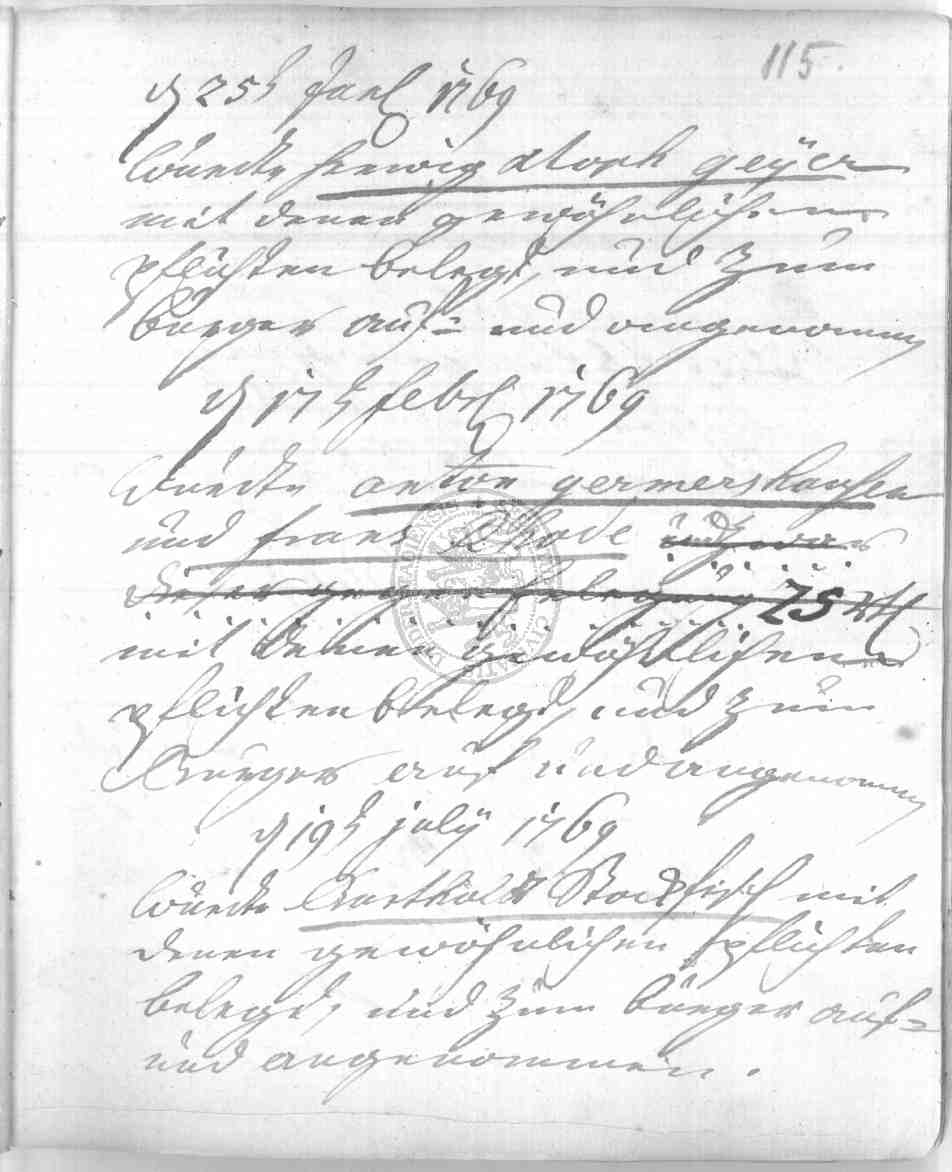 115.
d 25t Janl 1769
wurdte Herwig Kloph geÿer
mit denen gewöhnlichen
pflichten belegt, und zum
burger auf= und angenommen
d 17t febrl 1769
wurdte anton germershausen
und frans Rhode und zwar
dieser gegen erlegung 25 rtl
mit denen gewöhnlichen
pflichten belegt, und zum
Burger auf und angenommen
d 19t julÿ 1769
wurdte Barthold Stockfisch mit
denen gewöhnlichen pflichten
belegt, und zum burger auf=
und angenommen.